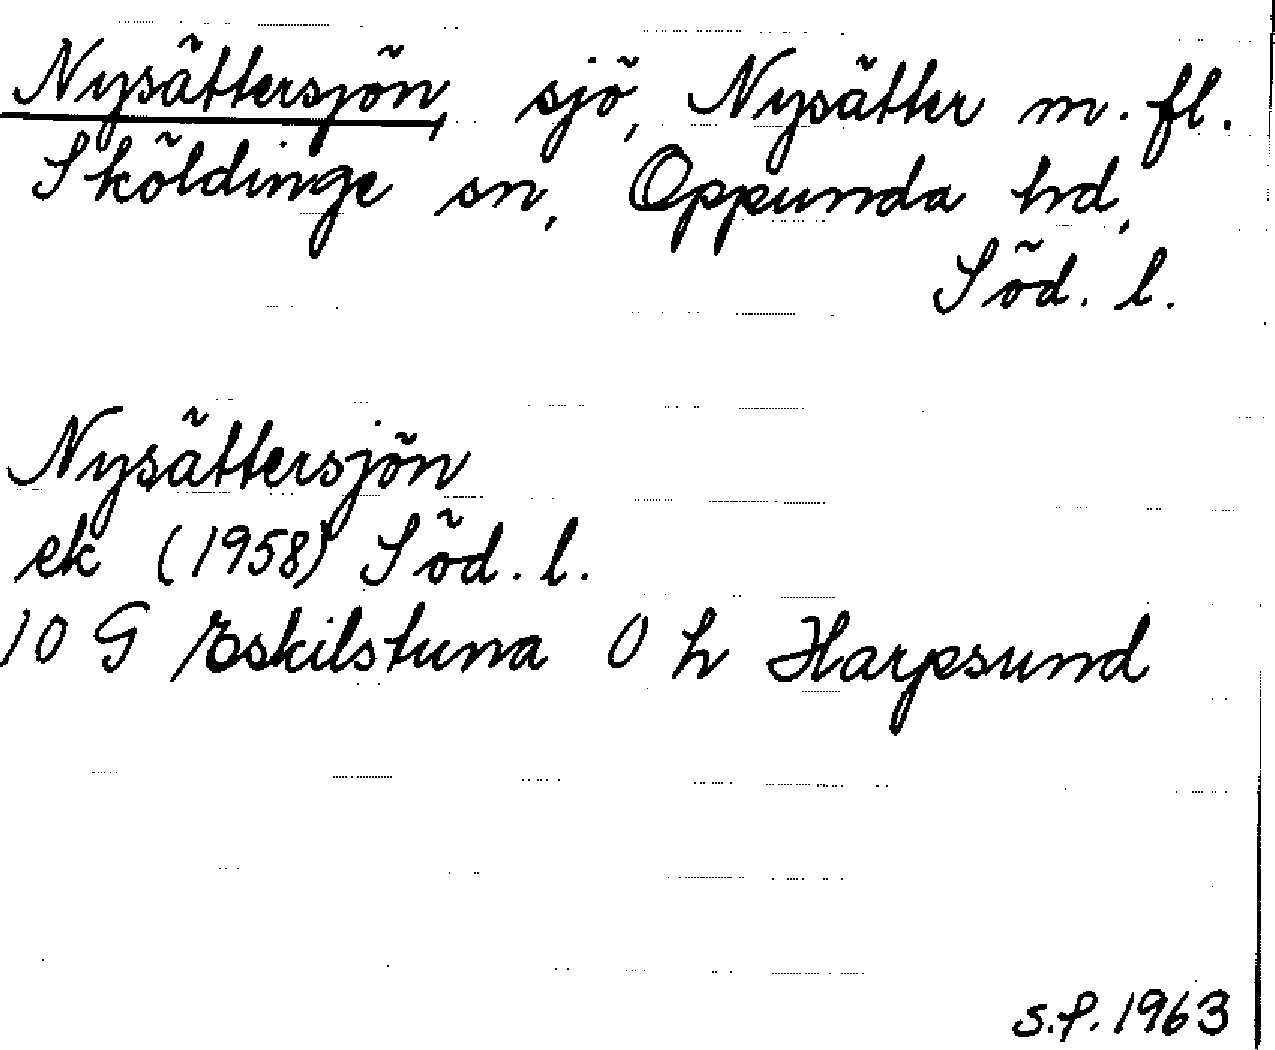 Nysättersjön, sjö, Nysätter m. fl.
Sköldinge sn, Oppunda hd,
Söd. l.
Nysättersjön
ek (1958) Söd. l.
10 G Eskilstuna 0 h Harpsund
s.f. 1963